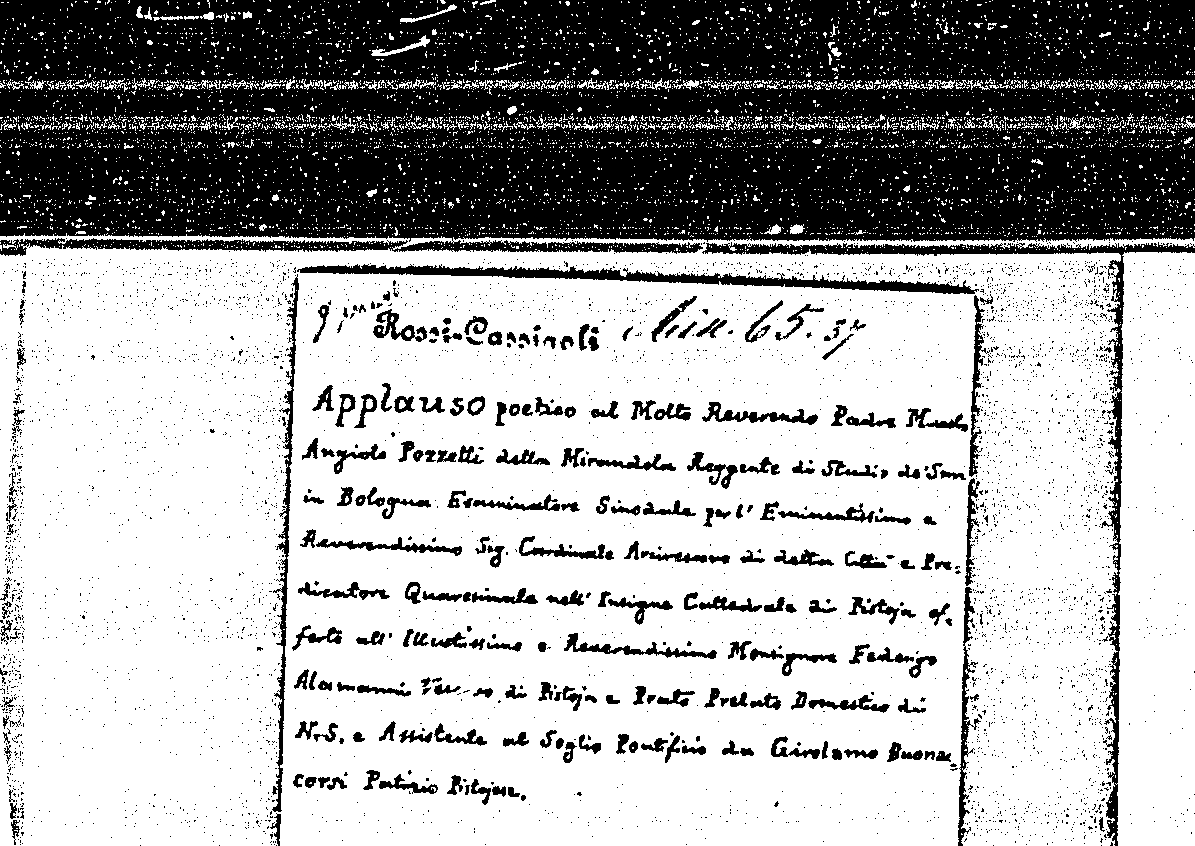 Rossi-Cassigoli Min. 65. 37
Applauso poetico al Molto Reverendo Padre Maestro
Angiolo Pozzetti della Mirandola Reggente di Studio de' San
in Bologna Esaminatore Sinodale per l' Eminentissimo e
Reverendissimo Sig. Cardinale Arcivescovo di detta Città e Pre=
dicatore Quaresimale nell' Insigne Cattedrale di Pistoja of=
ferto all' Illustissimo e Reverendissimo Monsignore Federigo
Alamanni di Pistoja e Prato Prelato Domestico di
N.S. e Assistente al Soglio Pontificio da Girolamo Buonac=
corsi Patrizio Pistojese.